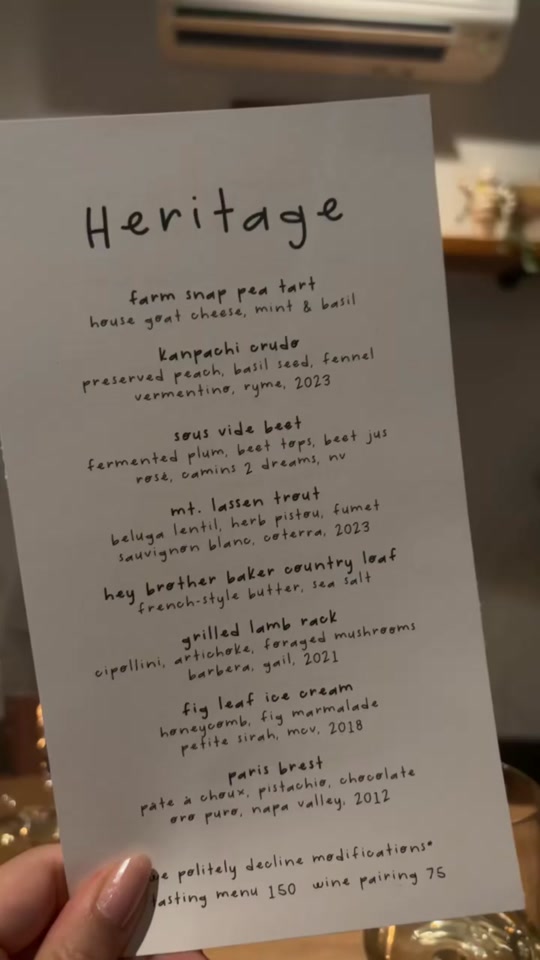 Heritage
farm snap pea tart
house goat cheese, mint & basil
kanpachi crudo
preserved peach, basil seed, fennel
vermentino, ryme, 2023
sous vide beet
fermented plum, beet tops, beet jus
rosé, camins 2 dreams, nv
mt. lassen trout
beluga lentil, herb pistou, fumet
sauvignon blanc, coterra, 2023
hey brother baker country loaf
french-style butter, sea salt
grilled lamb rack
cipollini, artichoke, foraged mushrooms
barbera, gail, 2021
fig leaf ice cream
honeycomb, fig marmalade
petite sirah, mcv, 2018
paris brest
pâte à choux, pistachio, chocolate
oro puro, napa valley, 2012
we politely decline modifications*
tasting menu 150 wine pairing 75